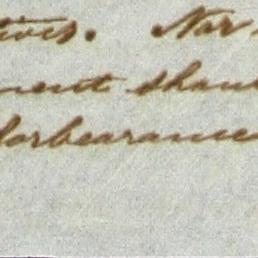 tives. Nor
ment shou
forbearance